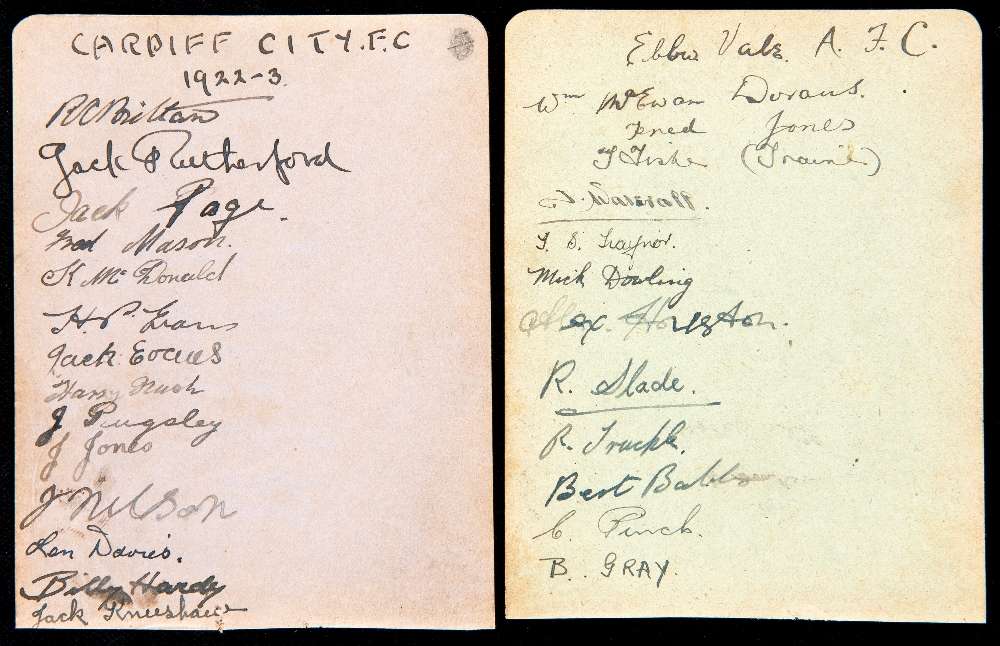 CARDIFF CITY. F.C
1922-3.
R C Brittan
Jack Rutherford
Jack Page.
Fred Mason.
K McDonald
H. P. Evans
Jack Evans
Harry Nash
J Pugsley
J Jones
J Nelson
Len Davies.
Billy Hardy
Jack Kneeshaw
Ebbw Vale. A. F. C.
Wm McEwan
Fred Jones
T Fisher
T. S. Traynor.
Mick Dowling
Alex. Houston.
R. Slade.
R. Truckle.
Bert
C. Pinch.
B. GRAY.